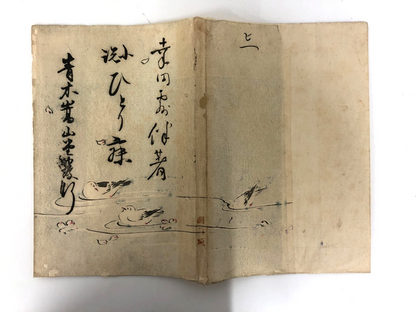 上
幸田露伴著
小説ひとり寐
青木嵩山堂發行